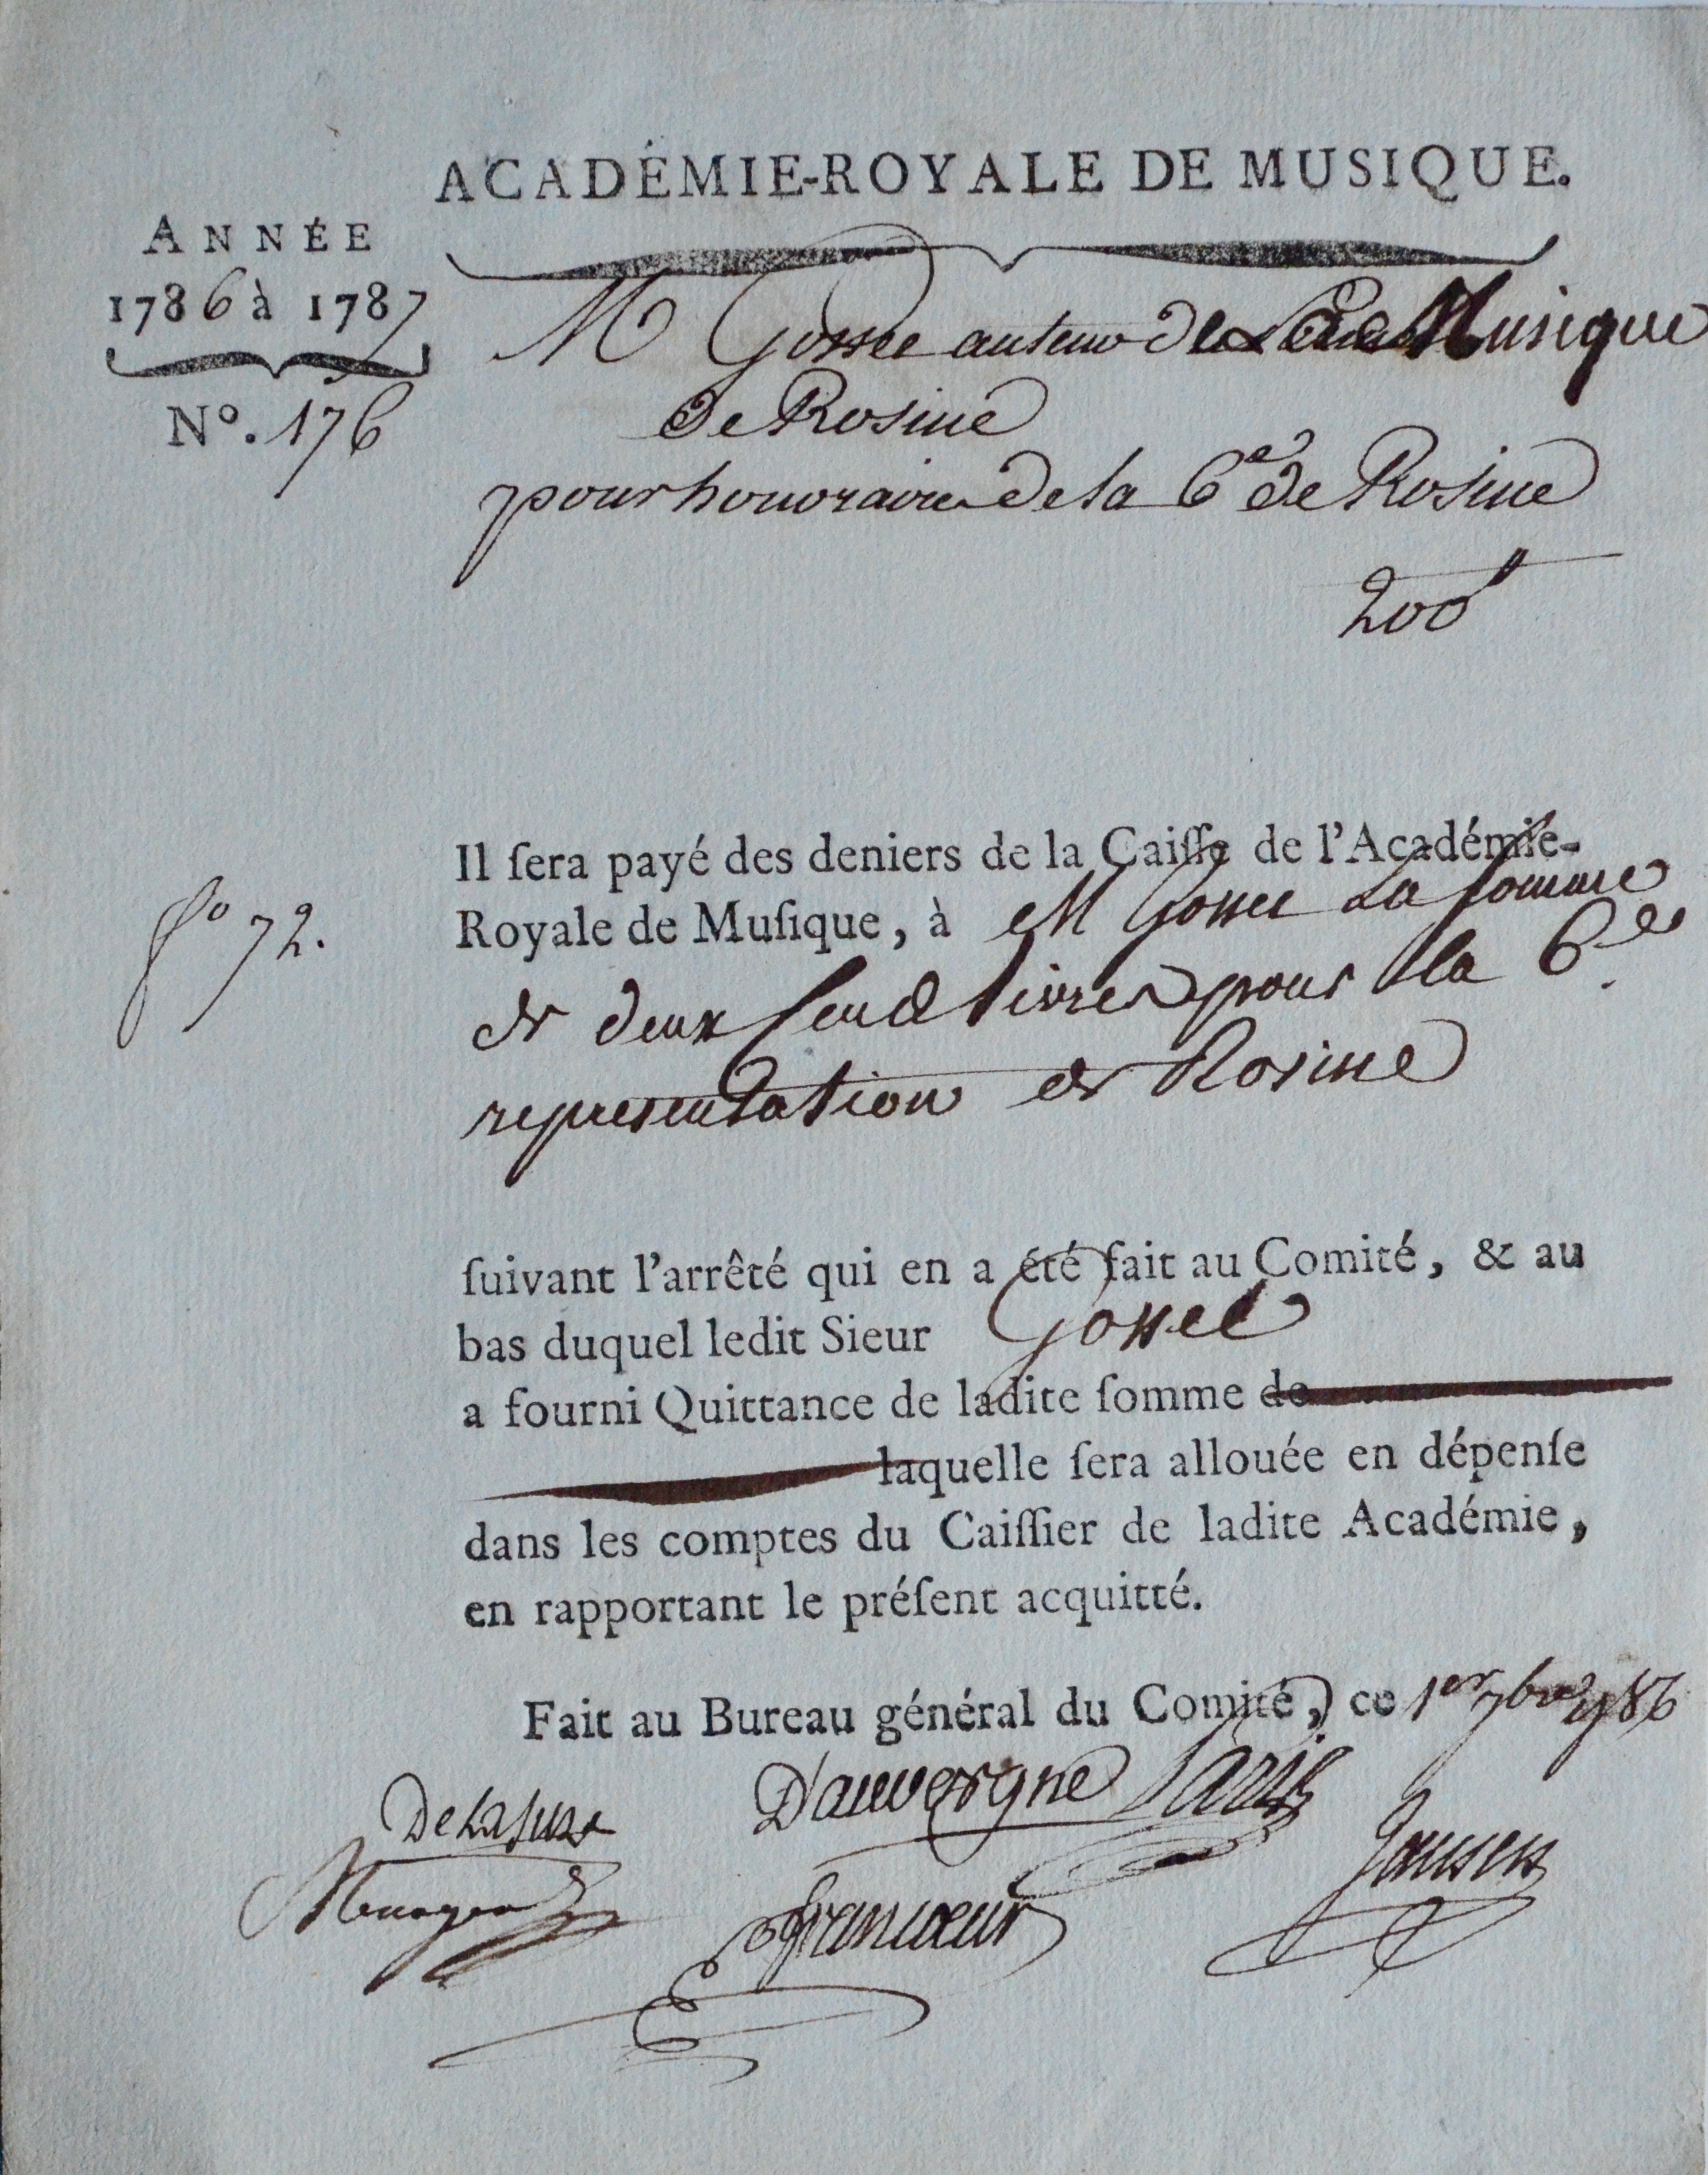 ACADÉMIE-ROYALE DE MUSIQUE.
ANNÉE
1786 à 1787
N°. 176
M Gossec auteur de la Musique
de Rosine
pour honoraire de la 6e de Rosine
200#
Il ſera payé des deniers de la Caiſſe de l'Académie-
Royale de Muſique, à M Gossec La somme
f° 72.
de deux Cent livres pour la 6e
representation de Rosine
ſuivant l'arrêté qui en a été fait au Comité, & au
bas duquel ledit Sieur Gossec
a fourni Quittance de ladite ſomme de
laquelle ſera allouée en dépenſe
dans les comptes du Caiſſier de ladite Académie,
en rapportant le préſent acquitté.
Fait au Bureau général du Comité, ce 1er 7bre 1786
De Lasuze Dauvergne Paris Jansen
francoeur